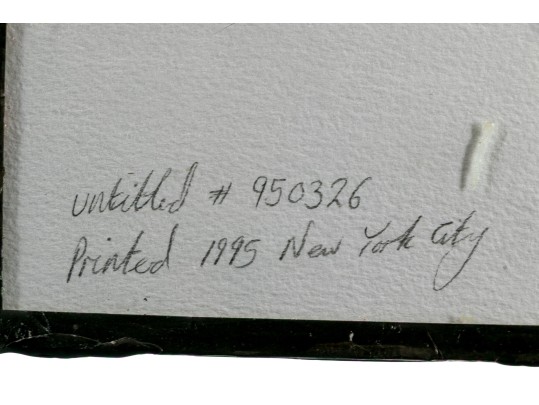 untitled # 950326
Printed 1995 New York City